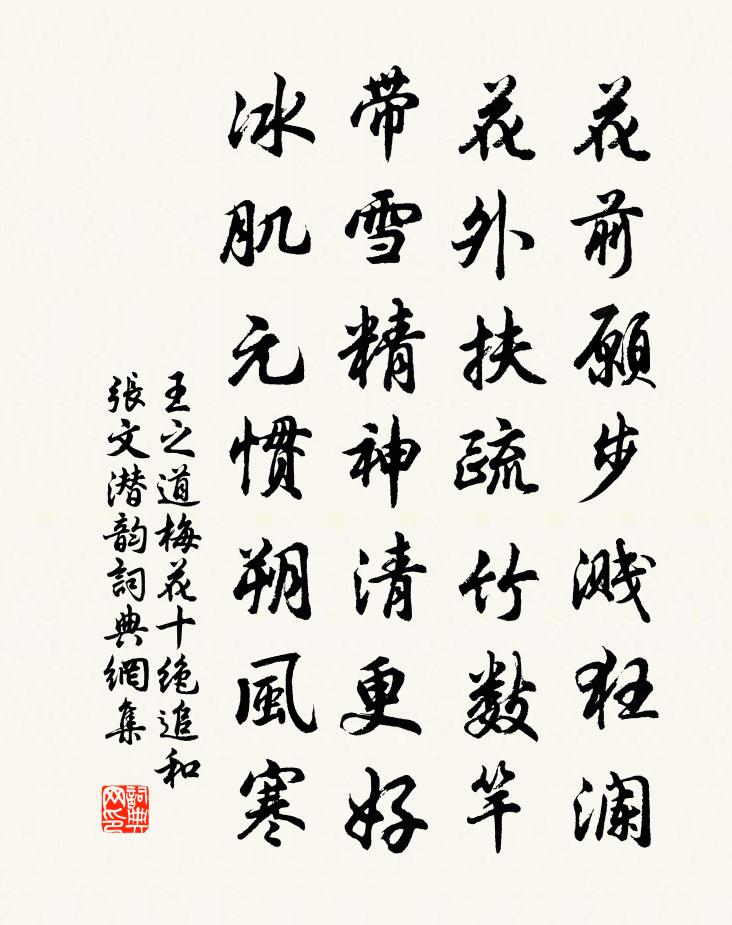 花前願步濺狂瀾
花外扶疏竹數竿
带雪精神清更好
冰肌元惯朔風寒
王之道梅花十绝追和
張文潜韵詞典網集
詞典网印